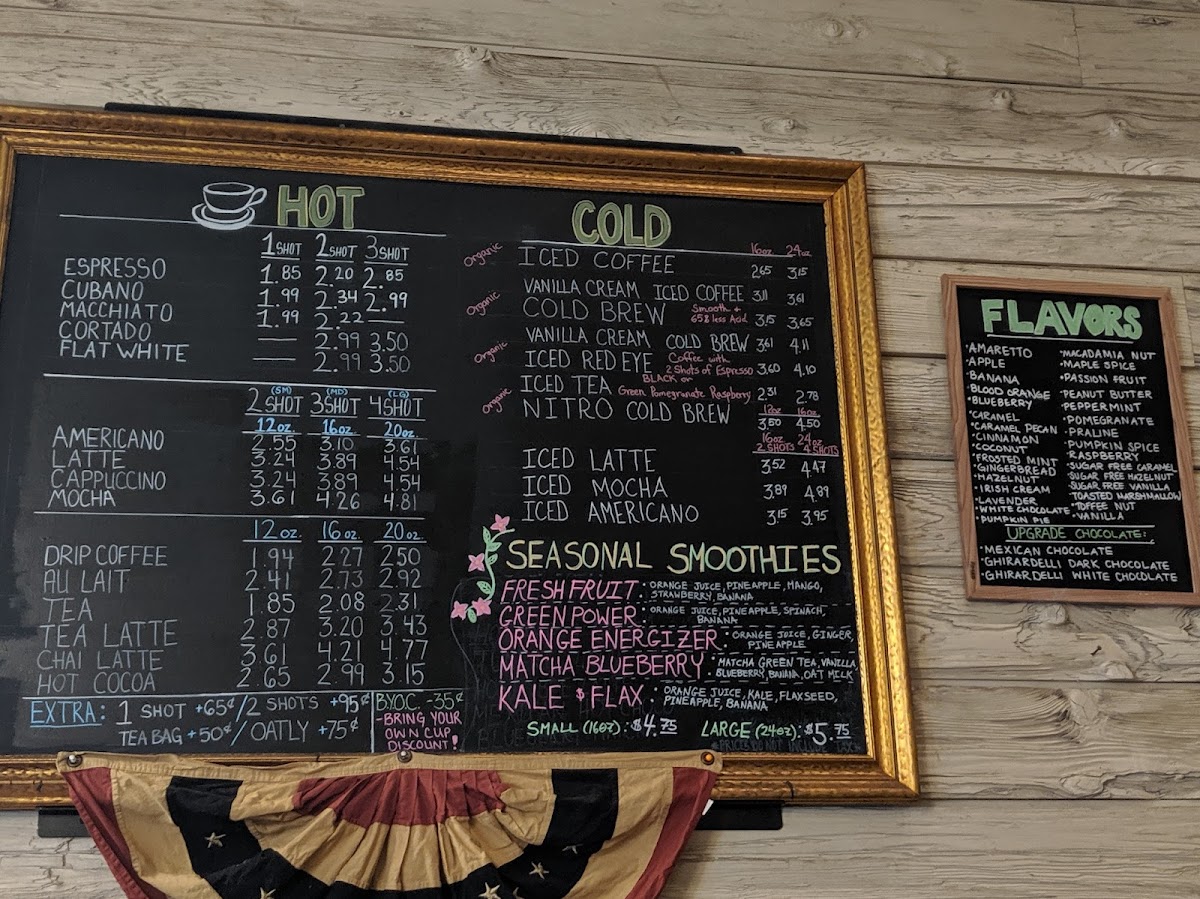 HOT
1 SHOT 2 SHOT 3 SHOT
ESPRESSO 1.85 2.20 2.85
CUBANO 1.99 2.34 2.99
MACCHIATO 1.99 2.22 —
CORTADO — 2.99 3.50
FLAT WHITE — 2.99 3.50
(SM) (MD) (LG)
2 SHOT 3 SHOT 4 SHOT
12oz. 16oz. 20oz.
AMERICANO 2.55 3.10 3.61
LATTE 3.24 3.89 4.54
CAPPUCCINO 3.24 3.89 4.54
MOCHA 3.61 4.26 4.81
12oz. 16oz. 20oz.
DRIP COFFEE 1.94 2.27 2.50
AU LAIT 2.41 2.73 2.92
TEA 1.85 2.08 2.31
TEA LATTE 2.87 3.20 3.43
CHAI LATTE 3.61 4.21 4.77
HOT COCOA 2.65 2.99 3.15
EXTRA: 1 SHOT +65¢/2 SHOTS +95¢
TEA BAG +50¢/OATLY +75¢
BYOC -35¢
-BRING YOUR
OWN CUP
DISCOUNT!
COLD
16oz 24oz
Organic ICED COFFEE 2.65 3.15
VANILLA CREAM ICED COFFEE 3.11 3.61
Organic COLD BREW Smooth + 65% less Acid 3.15 3.65
VANILLA CREAM COLD BREW 3.61 4.11
Organic ICED RED EYE Coffee with 2 Shots of Espresso 3.60 4.10
ICED TEA BLACK or Green Pomegranate Raspberry 2.31 2.78
12oz 16oz
Organic NITRO COLD BREW 3.50 4.50
16oz 24oz
2 SHOTS 4 SHOTS
ICED LATTE 3.52 4.47
ICED MOCHA 3.89 4.89
ICED AMERICANO 3.15 3.95
SEASONAL SMOOTHIES
FRESH FRUIT: ORANGE JUICE, PINEAPPLE, MANGO,
STRAWBERRY, BANANA
GREEN POWER: ORANGE JUICE, PINEAPPLE, SPINACH,
BANANA
ORANGE ENERGIZER: ORANGE JUICE, GINGER,
PINEAPPLE
MATCHA BLUEBERRY: MATCHA GREEN TEA, VANILLA,
BLUEBERRY, BANANA, OAT MILK
KALE & FLAX: ORANGE JUICE, KALE, FLAXSEED,
PINEAPPLE, BANANA
SMALL (16oz): $4.75 LARGE (24oz): $5.75
*PRICES DO NOT INCLUDE TAX*
FLAVORS
·AMARETTO
·APPLE
·BANANA
·BLOOD ORANGE
·BLUEBERRY
·CARAMEL
·CARAMEL PECAN
·CINNAMON
·COCONUT
·FROSTED MINT
·GINGERBREAD
·HAZELNUT
·IRISH CREAM
·LAVENDER
·WHITE CHOCOLATE
·PUMPKIN PIE
·MACADAMIA NUT
·MAPLE SPICE
·PASSION FRUIT
·PEANUT BUTTER
·PEPPERMINT
·POMEGRANATE
·PRALINE
·PUMPKIN SPICE
·RASPBERRY
·SUGAR FREE CARAMEL
·SUGAR FREE HAZELNUT
·SUGAR FREE VANILLA
·TOASTED MARSHMALLOW
·TOFFEE NUT
·VANILLA
UPGRADE CHOCOLATE:
·MEXICAN CHOCOLATE
·GHIRARDELLI DARK CHOCOLATE
·GHIRARDELLI WHITE CHOCOLATE